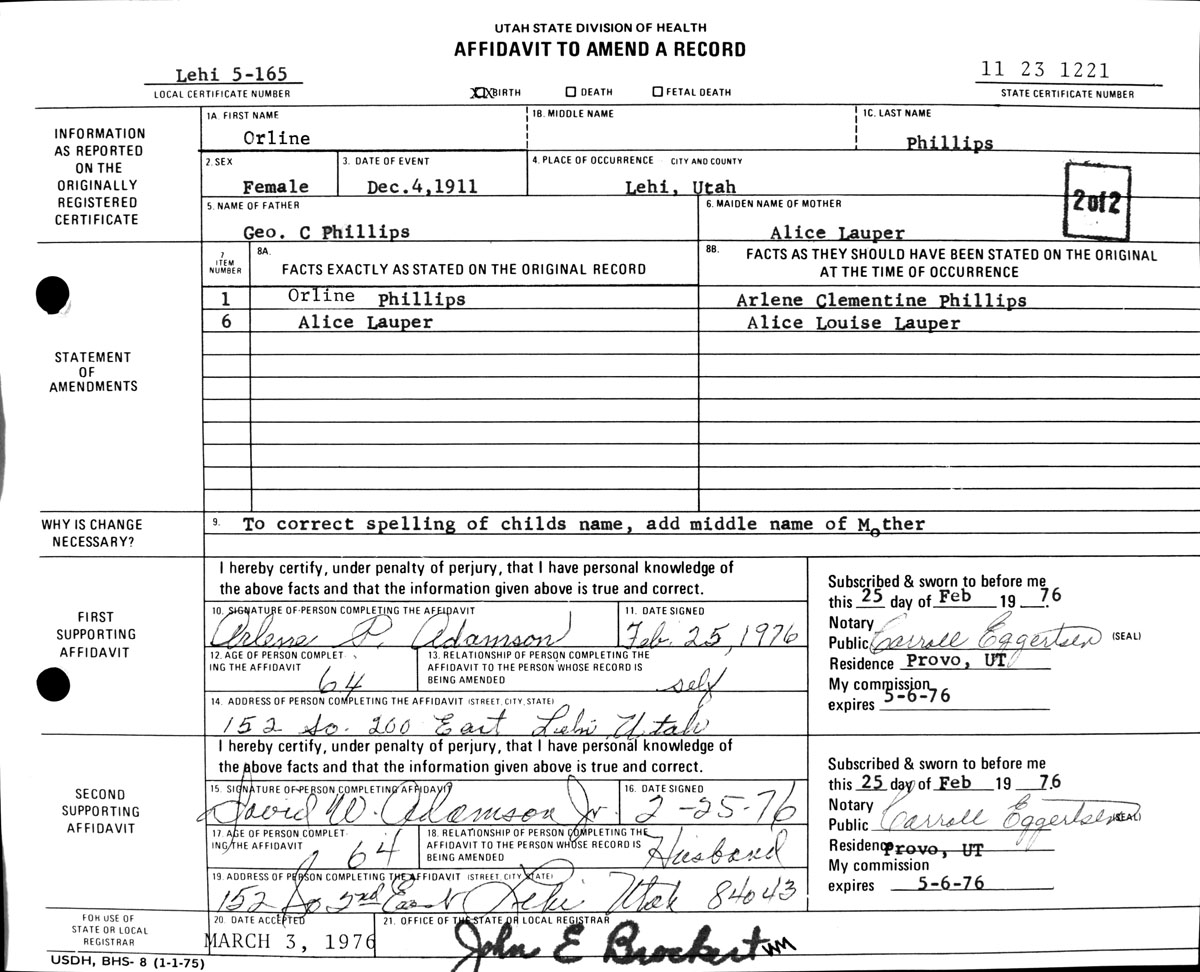 UTAH STATE DIVISION OF HEALTH
AFFIDAVIT TO AMEND A RECORD
Lehi 5-165
LOCAL CERTIFICATE NUMBER
XX BIRTH ☐ DEATH ☐ FETAL DEATH
11 23 1221
STATE CERTIFICATE NUMBER
INFORMATION AS REPORTED ON THE ORIGINALLY REGISTERED CERTIFICATE
1A. FIRST NAME 1B. MIDDLE NAME 1C. LAST NAME
Orline Phillips
2. SEX 3. DATE OF EVENT 4. PLACE OF OCCURRENCE - CITY AND COUNTY
Female Dec.4,1911 Lehi, Utah
2 of 2
5. NAME OF FATHER 6. MAIDEN NAME OF MOTHER
Geo. C Phillips Alice Lauper
STATEMENT OF AMENDMENTS
7. ITEM NUMBER
8A. FACTS EXACTLY AS STATED ON THE ORIGINAL RECORD
8B. FACTS AS THEY SHOULD HAVE BEEN STATED ON THE ORIGINAL AT THE TIME OF OCCURRENCE
1 Orline Phillips Arlene Clementine Phillips
6 Alice Lauper Alice Louise Lauper
WHY IS CHANGE NECESSARY?
9. To correct spelling of childs name, add middle name of Mother
FIRST SUPPORTING AFFIDAVIT
I hereby certify, under penalty of perjury, that I have personal knowledge of
the above facts and that the information given above is true and correct.
10. SIGNATURE OF PERSON COMPLETING THE AFFIDAVIT 11. DATE SIGNED
Arlene P. Adamson Feb. 25, 1976
12. AGE OF PERSON COMPLETING THE AFFIDAVIT
64
13. RELATIONSHIP OF PERSON COMPLETING THE AFFIDAVIT TO THE PERSON WHOSE RECORD IS BEING AMENDED
self
14. ADDRESS OF PERSON COMPLETING THE AFFIDAVIT (STREET, CITY, STATE)
152 So. 200 East Lehi Utah
Subscribed & sworn to before me
this 25 day of Feb 19 76
Notary
Public Carroll Eggertsen (SEAL)
Residence Provo, UT
My commission
expires 5-6-76
SECOND SUPPORTING AFFIDAVIT
I hereby certify, under penalty of perjury, that I have personal knowledge of
the above facts and that the information given above is true and correct.
15. SIGNATURE OF PERSON COMPLETING THE AFFIDAVIT 16. DATE SIGNED
David W. Adamson Jr. 2-25-76
17. AGE OF PERSON COMPLETING THE AFFIDAVIT
64
18. RELATIONSHIP OF PERSON COMPLETING THE AFFIDAVIT TO THE PERSON WHOSE RECORD IS BEING AMENDED
Husband
19. ADDRESS OF PERSON COMPLETING THE AFFIDAVIT (STREET, CITY, STATE)
152 So 2nd East Lehi Utah 84043
Subscribed & sworn to before me
this 25 day of Feb 19 76
Notary
Public Carroll Eggertsen (SEAL)
Residence Provo, UT
My commission
expires 5-6-76
FOR USE OF STATE OR LOCAL REGISTRAR
20. DATE ACCEPTED 21. OFFICE OF THE STATE OR LOCAL REGISTRAR
MARCH 3, 1976 John E Brockert
USDH, BHS- 8 (1-1-75)